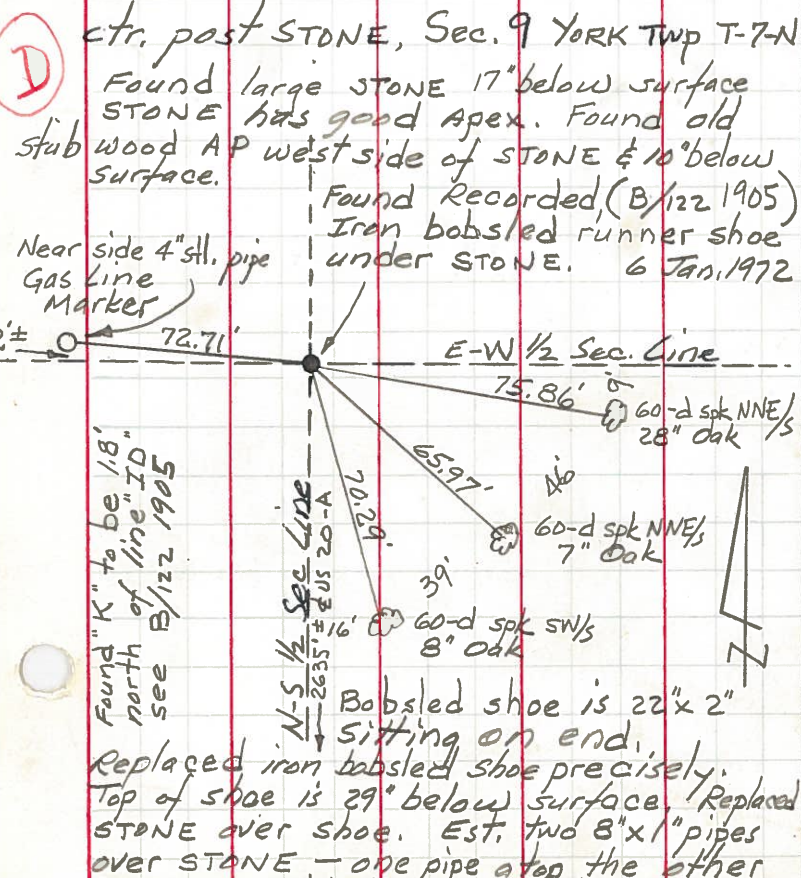 D
ctr. post STONE, Sec. 9 YORK Twp T-7-N
Found large STONE 17" below surface
STONE has good Apex. Found old
stub wood AP west side of STONE & 10" below
surface.
Found Recorded, (B/122 1905)
Iron bobsled runner shoe
under STONE. 6 Jan. 1972
Near side 4" stl. pipe
Gas Line
Marker
2'±
72.71'
E-W 1/2 Sec. Line
75.86'
60-d spk NNE/s
28" Oak
65.97'
46'
60-d spk NNE/s
7" Oak
70.29'
39'
16'
60-d spk SW/s
8" Oak
N-S 1/2 Sec Line
2635'± ⅊ US 20-A
Found "K" to be 1.8'
north of line "ID"
see B/122 1905
N
Bobsled shoe is 22" x 2"
Sitting on end.
Replaced iron bobsled shoe precisely.
Top of shoe is 29" below surface. Replaced
STONE over shoe. Est. two 8" x 1" pipes
over STONE - one pipe atop the other